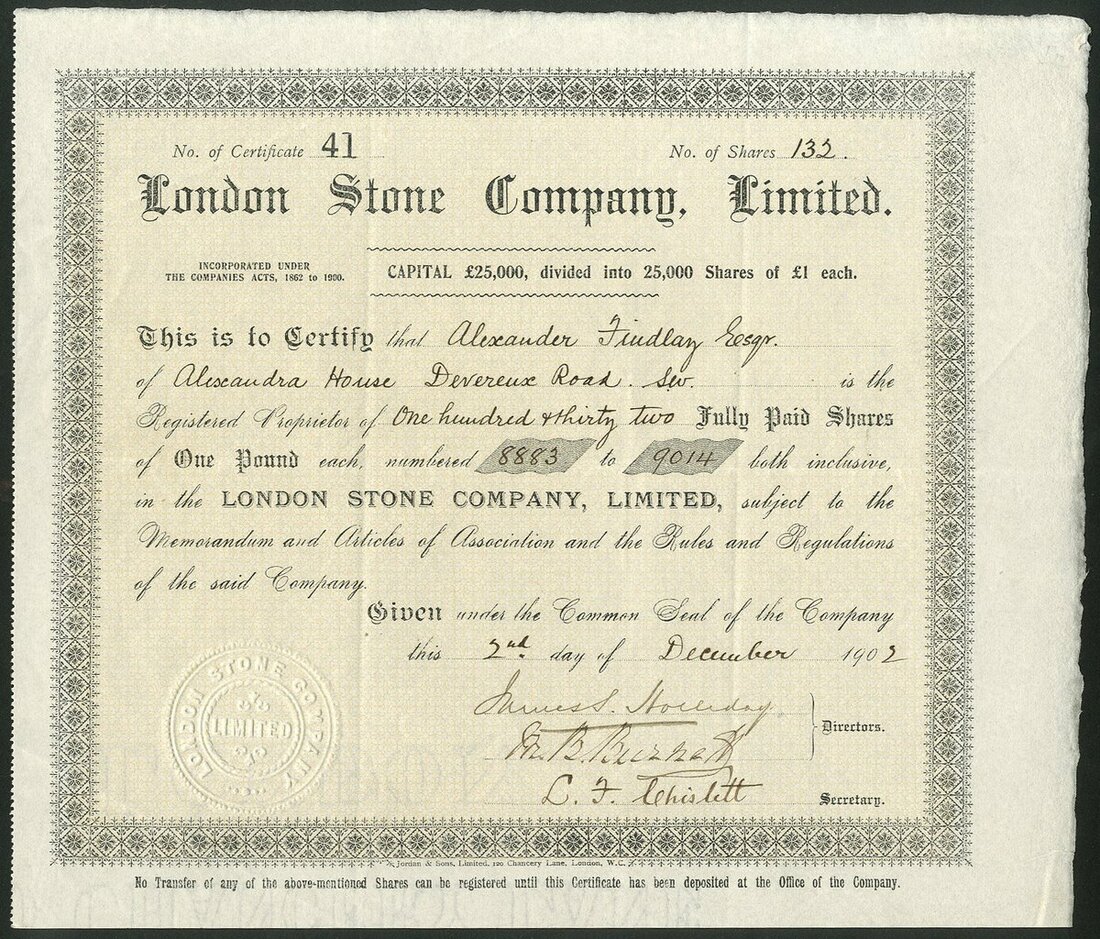 No. of Certificate 41
No. of Shares 132.
London Stone Company, Limited.
INCORPORATED UNDER
THE COMPANIES ACTS, 1862 to 1900.
CAPITAL £25,000, divided into 25,000 Shares of £1 each.
This is to Certify that Alexander Findlay Esqr.
of Alexandra House Devereux Road. SW. is the
Registered Proprietor of One hundred & thirty two Fully Paid Shares
of One Pound each, numbered 8883 to 9014 both inclusive,
in the LONDON STONE COMPANY, LIMITED, subject to the
Memorandum and Articles of Association and the Rules and Regulations
of the said Company.
Given under the Common Seal of the Company
this 2nd day of December 1902
James S. Holliday
B. Burnett
Directors.
L. F. Chislett
Secretary.
LONDON STONE COMPANY
LIMITED
Jordan & Sons, Limited, 120 Chancery Lane, London, W.C.
No Transfer of any of the above-mentioned Shares can be registered until this Certificate has been deposited at the Office of the Company.